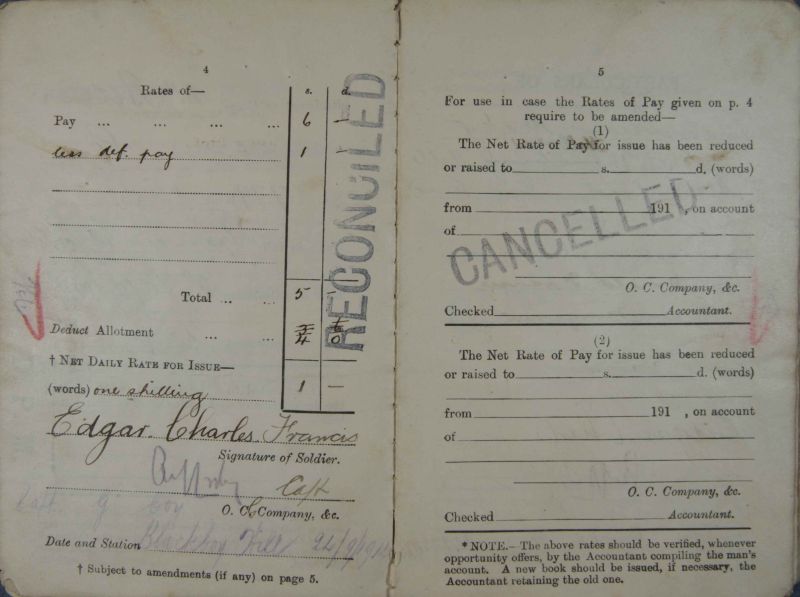 4
Rates of—
s. d.
Pay ... ... ... ... 6 -
less def. pay 1 -
RECONCILED
Total ... ... 5 -
Deduct Allotment ... ... 4 0
† NET DAILY RATE FOR ISSUE—
(words) one shilling 1 —
Edgar Charles Francis
Signature of Soldier.
Capt
O. C. Company, &c.
Date and Station Blackboy Hill 24/9/191
† Subject to amendments (if any) on page 5.
5
For use in case the Rates of Pay given on p. 4
require to be amended—
(1)
The Net Rate of Pay for issue has been reduced
or raised to s. d. (words)
from 191 , on account
of
CANCELLED
O. C. Company, &c.
Checked Accountant.
(2)
The Net Rate of Pay for issue has been reduced
or raised to s. d. (words)
from 191 , on account
of
O. C. Company, &c.
Checked Accountant.
* NOTE.— The above rates should be verified, whenever
opportunity offers, by the Accountant compiling the man's
account. A new book should be issued, if necessary, the
Accountant retaining the old one.